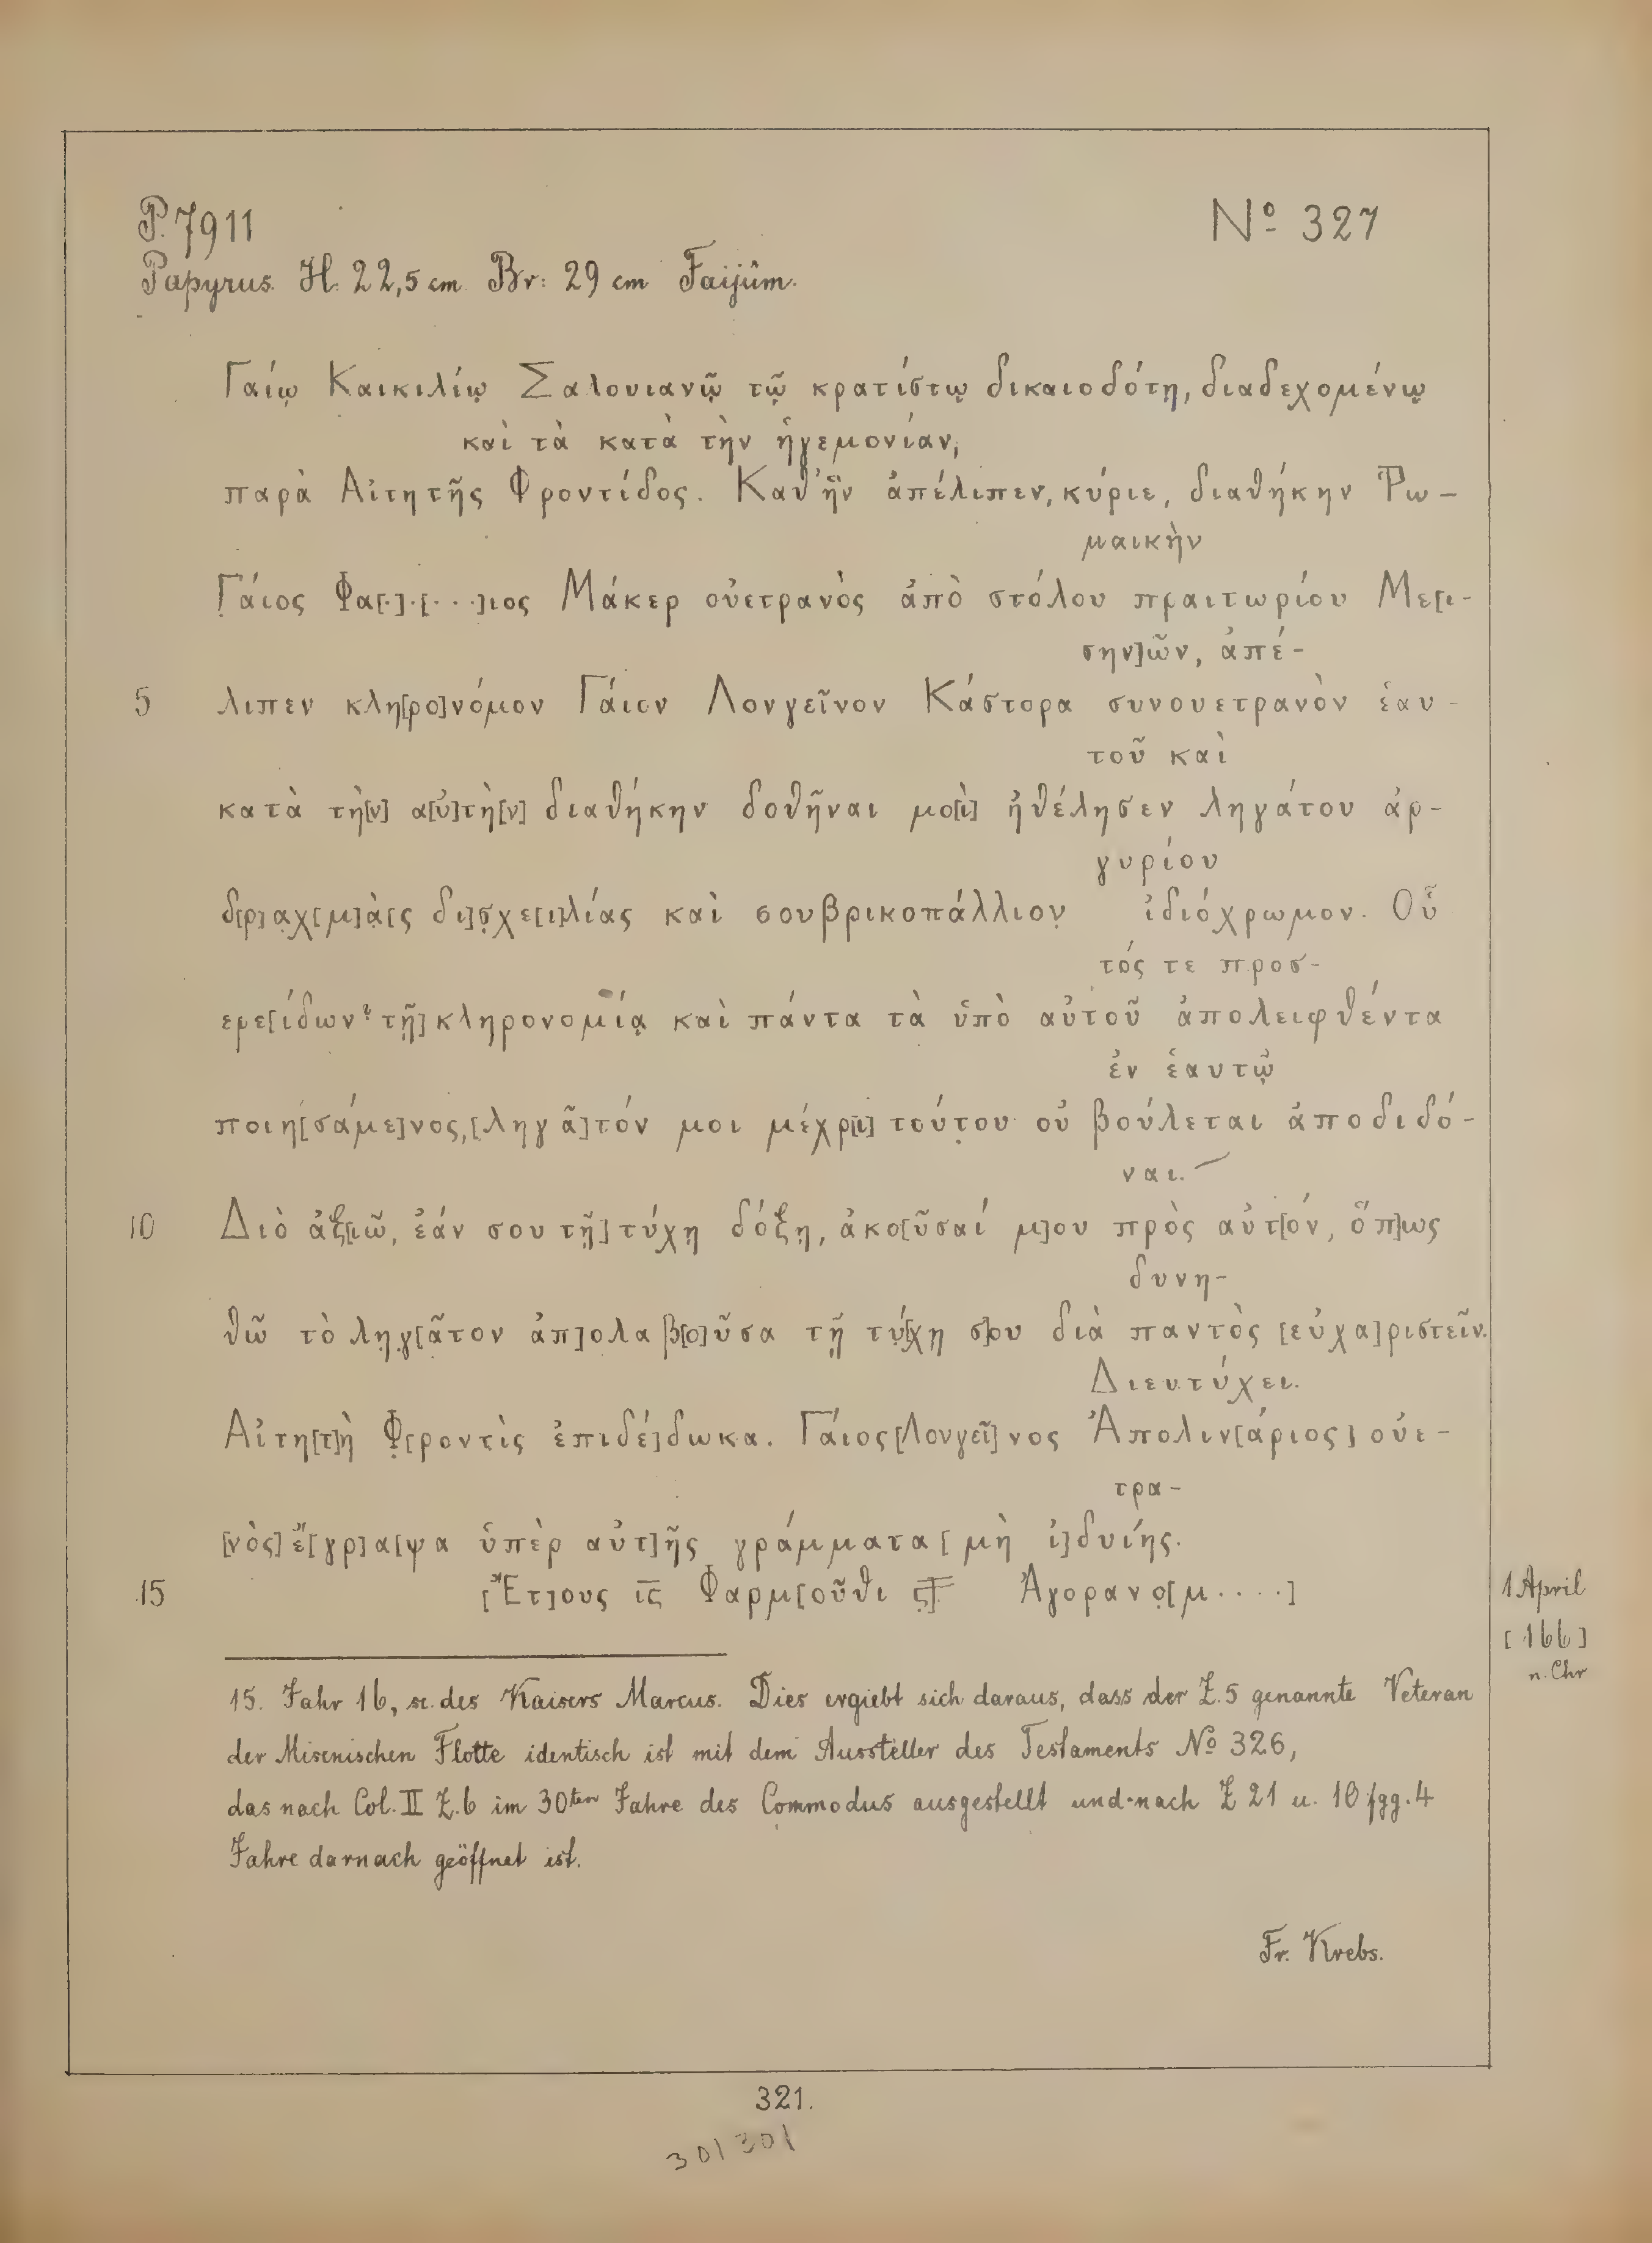 P. 7911
Nº 327
Papyrus. H: 22,5 cm Br: 29 cm Faijûm.
Γαίῳ Καικιλίῳ Σαλουιανῷ τῷ κρατίστῳ δικαιοδότῃ, διαδεχομένῳ
καὶ τὰ κατὰ τὴν ἡγεμονίαν,
παρὰ Αἰτητῆς Φροντίδος. Καθ᾽ ἣν ἀπέλιπεν, κύριε, διαθήκην Ῥω-
μαικὴν
Γάιος Φα[·]·[···]ιος Μάκερ οὐετρανὸς ἀπὸ στόλου πραιτωρίου Με[ι-
σην]ῶν, ἀπέ-
5 λιπεν κλη[ρο]νόμον Γάιον Λονγεῖνον Κάστορα συνουετρανὸν ἑαυ-
τοῦ καὶ
κατὰ τὴ[ν] α[ὐ]τὴ[ν] διαθήκην δοθῆναι μο[ὶ] ἠθέλησεν ληγάτου ἀρ-
γυρίου
δ[ρ]αχ[μ]ὰ[ς δι]σχε[ι]λίας καὶ σουβρικοπάλλιον ἰδιόχρωμον. Οὗ
τός τε προσ-
ερε[ίδων? τῇ] κληρονομίᾳ καὶ πάντα τὰ ὑπὸ αὐτοῦ ἀπολειφθέντα
ἐν ἑαυτῷ
ποιη[σάμε]νος, [ληγᾶ]τόν μοι μέχρ[ι] τούτου οὐ βούλεται ἀποδιδό-
ναι.
10 Διὸ ἀξ[ιῶ, ἐάν σου τῇ] τύχῃ δόξῃ, ἀκο[ῦσαί μ]ου πρὸς αὐτ[όν, ὅπ]ως
δυνη-
θῶ τὸ ληγ[ᾶτον ἀπ]ολαβ[ο]ῦσα τῇ τύ[χῃ σ]ου διὰ παντὸς [εὐχα]ριστεῖν.
Διευτύχει.
Αἰτη[τ]ὴ Φ[ροντὶς ἐπιδέ]δωκα. Γάιος [Λονγεῖ]νος Ἀπολιν[άριος] οὐε-
τρα-
[νὸς] ἔ[γρ]α[ψα ὑπὲρ αὐτ]ῆς γράμματα [μὴ ἰ]δυίης.
15 [Ἔτ]ους ις Φαρμ[οῦθι ς] Ἀγορανο[μ····]
1 April
[166]
n. Chr
15. Jahr 16, sc. des Kaisers Marcus. Dies ergiebt sich daraus, dass der Z. 5 genannte Veteran
der Misenischen Flotte identisch ist mit dem Aussteller des Testaments Nº 326,
das nach Col. II Z. 6 im 30ten Jahre des Commodus ausgestellt und nach Z 21 u. 10 fgg. 4
Jahre darnach geöffnet ist.
Fr. Krebs.
321.
301 301